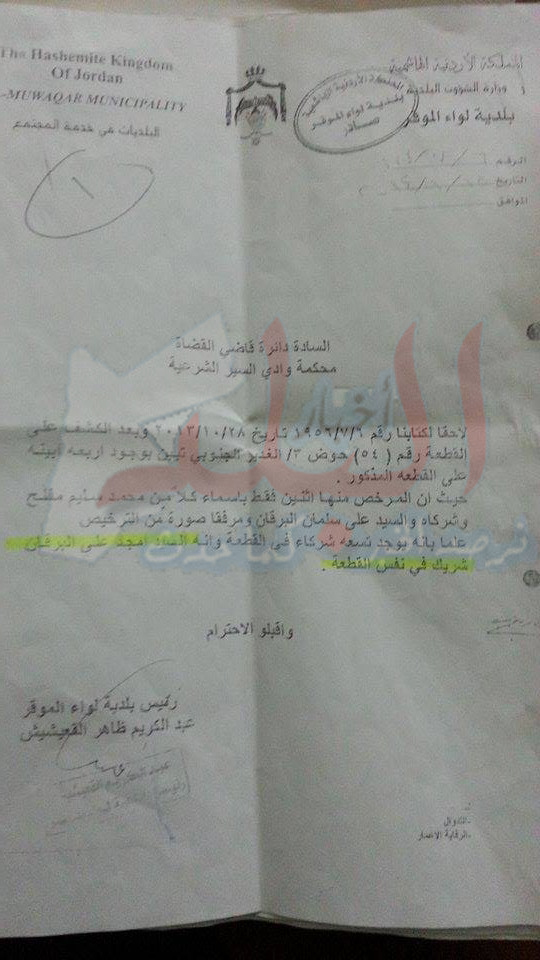 The Hashemite Kingdom
Of Jordan
-MUWAQAR MUNICIPALITY
البلديات في خدمة المجتمع
المملكة الأردنية الهاشمية
وزارة الشؤون البلدية
بلدية لواء الموقر
المملكة الأردنية الهاشمية
بلدية لواء الموقر
صادر
الرقم
التاريخ
الموافق
السادة دائرة قاضي القضاة
محكمة وادي السير الشرعية
لاحقا لكتابنا رقم ١٩٥٦/٧/٦ تاريخ ٢٠١٣/١٠/٢٨ وبعد الكشف على
القطعة رقم ( ٥٤ ) حوض ٣/ الغدير الجنوبي تبين بوجود اربعه ابنيه
على القطعه المذكور .
حيث ان المرخص منها اثنين فقط باسماء كلاً من محمد سليم مفلح
وشركاه والسيد على سلمان البرقان ومرفقا صورة من الترخيص
علما بانه يوجد تسعه شركاء في القطعة وانه السيد امجد على البرقان
شريك في نفس القطعة .
واقبلو الاحترام
رئيس بلدية لواء الموقر
عبد الكريم ظاهر القعيشيش
أخبار البلد